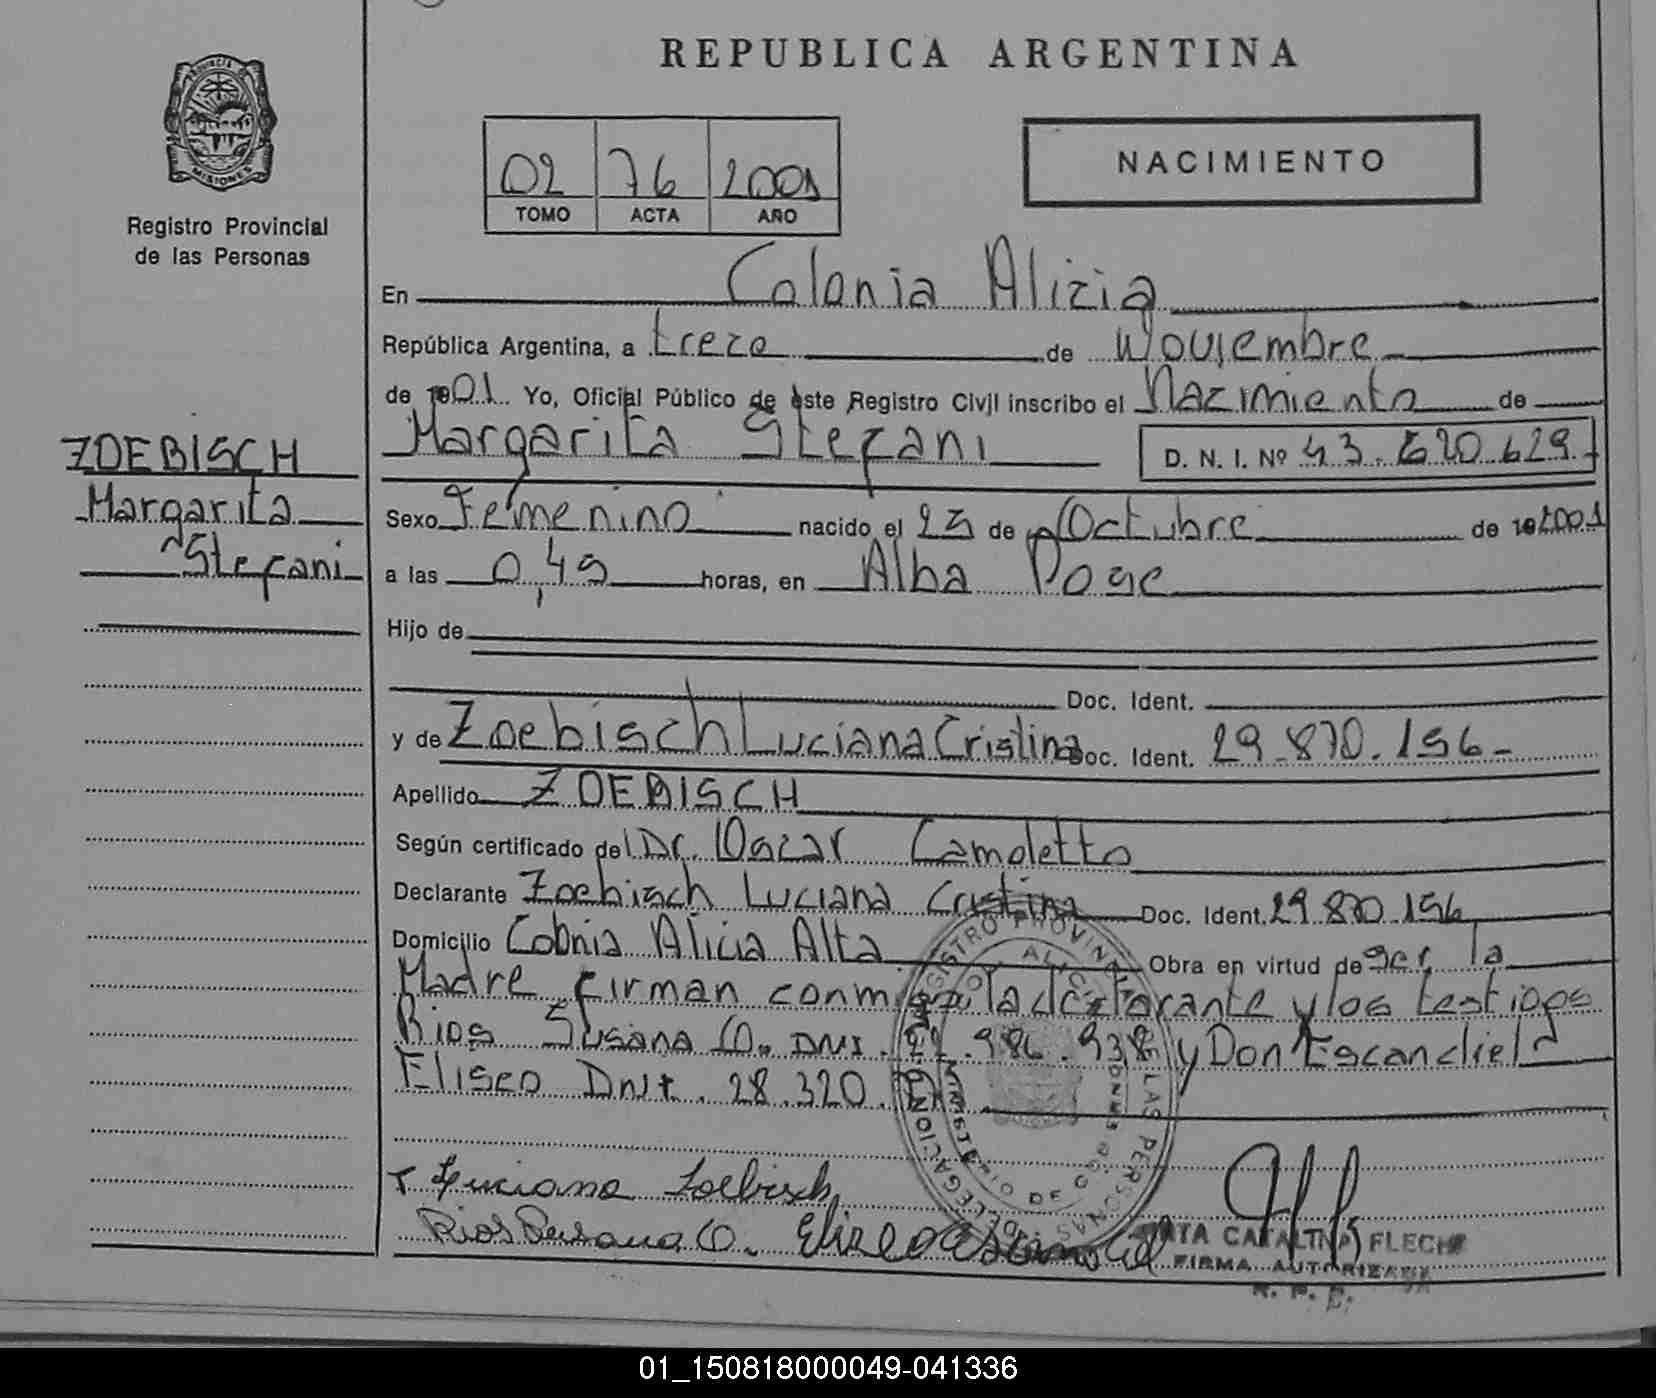 REPUBLICA ARGENTINA
PROVINCIA DE
MISIONES
Registro Provincial
de las Personas
02 76 2001
TOMO ACTA AÑO
NACIMIENTO
En Colonia Alizia
República Argentina, a treze de Noviembre
de 1901 Yo, Oficial Público de este Registro Civil inscribo el Nazimiento de
Margarita Stefani D. N. I. Nº 43.620.629
ZOEBISCH
Margarita
Stefani
Sexo Femenino nacido el 25 de Octubre de 2001
a las 0,45 horas, en Alba Pose
Hijo de
Doc. Ident.
y de Zoebisch Luciana Cristina Doc. Ident. 29.870.156
Apellido ZOEBISCH
Según certificado del Dr. Oscar Camoletto
Declarante Zoebisch Luciana Cristina Doc. Ident. 29.870.156
Domicilio Colonia Alicia Alta Obra en virtud de ser la
Madre firman conmigo la declarante y los testigos
Rios Susana O. DNI. 986.938 y Don Escandiel
Eliseo DNI. 28.320.
Luciana Zoebisch
Rios Susana O. Eliseo
CATALINA FLECH
FIRMA AUTORIZADA
R. P. P.
01_150818000049-041336